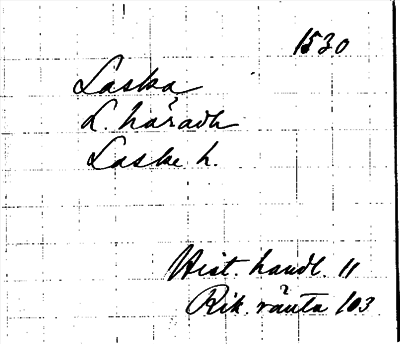 1530
Laska
L. háradh
Laske h.
Hist. handl. 11
Rik. ränta 103